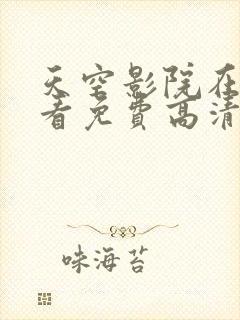 天空影院在
看免费高清
味海苔